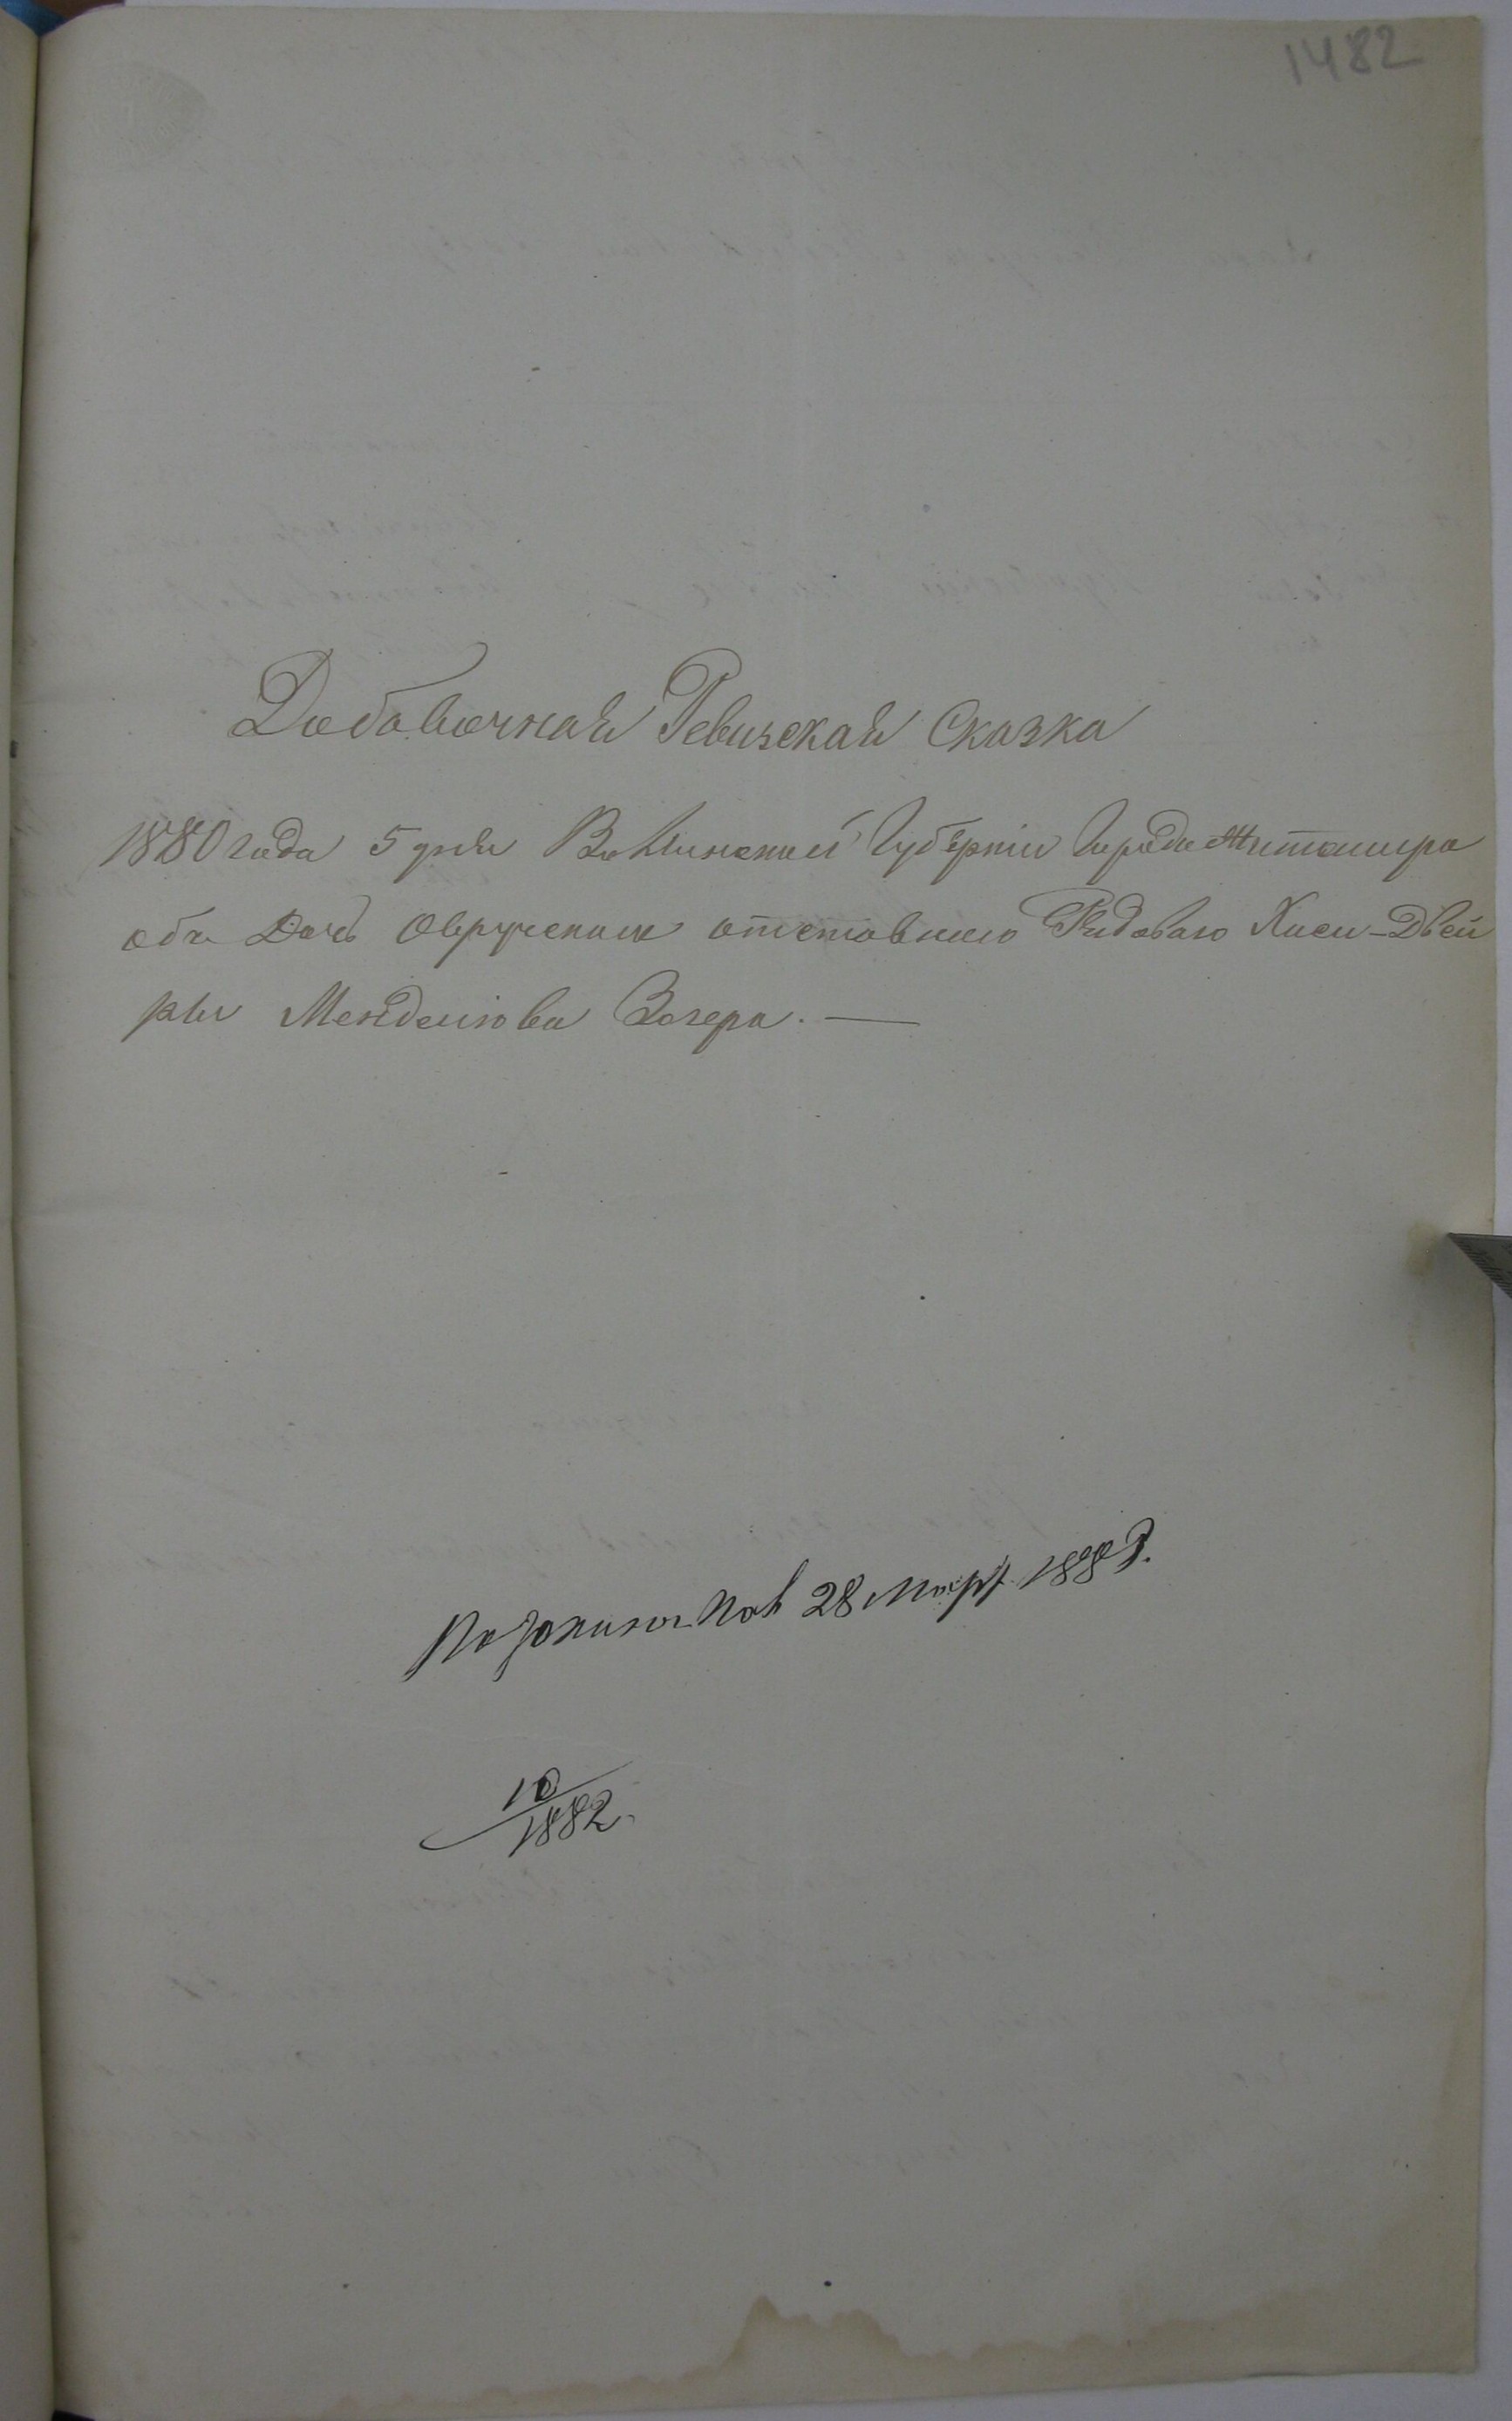 1482
Добавочная Ревизская Сказка
1880 года 5 дня Волынской Губернии Города Житомира
объ Дочь Овручскаго отставнаго Рядоваго Хаси-Двей
ры Менделюва Вогера. —
28 Март 188
10
1882.